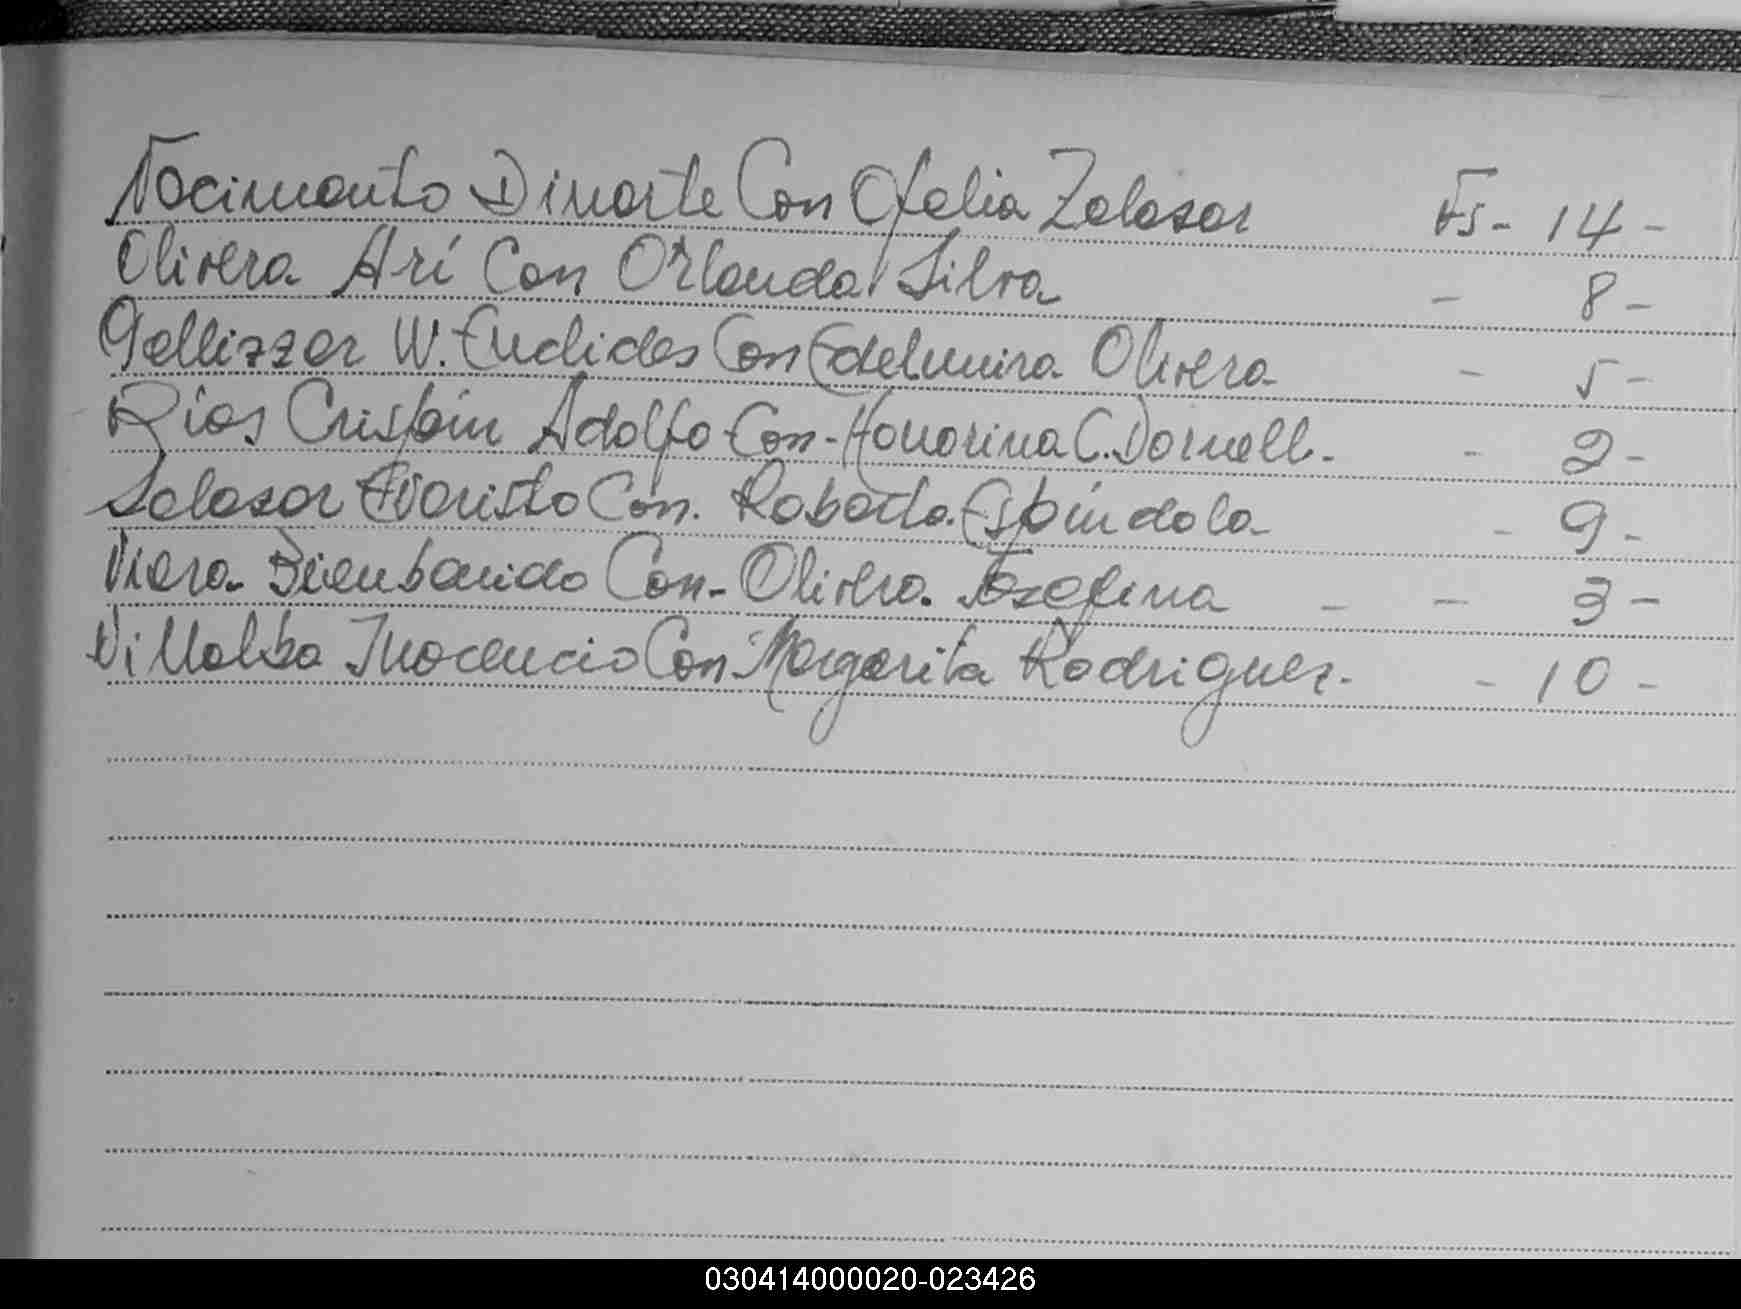 Nacimento Dinarte Con Ofelia Zalasar Fs- 14 -
Olivera Arí Con Orlanda Silva - 8 -
Gallizzer W. Euclides Con Edelmira Olivera - 5 -
Ríos Crispín Adolfo Con - Honorina C. Dornell. - 2 -
Salasar Evaristo Con. Roberta. Espíndola - 9 -
Viera Bienbenido Con - Olivera. Josefina - - 3 -
Villalba Inocencio Con Margarita Rodriguez. - 10 -
030414000020-023426